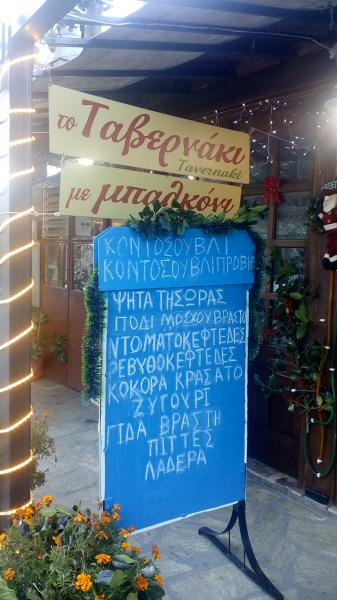 το Ταβερνάκι
Tavernaki
με μπαλκόνι
ΚΟΝΤΟΣΟΥΒΛΙ
ΚΟΝΤΟΣΟΥΒΛΙ ΠΡΟΒΙΟ
ΨΗΤΑ ΤΗΣ ΩΡΑΣ
ΠΟΔΙ ΜΟΣΧΟΥ ΒΡΑΣΤΟ
ΝΤΟΜΑΤΟΚΕΦΤΕΔΕΣ
ΡΕΒΥΘΟΚΕΦΤΕΔΕΣ
ΚΟΚΟΡΑ ΚΡΑΣΑΤΟ
ΖΥΓΟΥΡΙ
ΓΙΔΑ ΒΡΑΣΤΗ
ΠΙΤΤΕΣ
ΛΑΔΕΡΑ